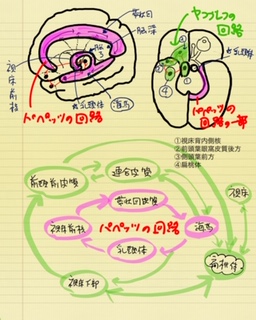 帯状回
脳梁
脳弓
視床前核
乳頭体
海馬
パペッツの回路
ヤコブレフの回路
乳頭体
パペッツの回路の一部
①視床背内側核
②前頭葉眼窩皮質後方
③側頭葉前方
④扁桃体
前頭前皮質
連合皮質
視床
帯状回皮質
視床前核
パペッツの回路
海馬
乳頭体
扁桃体
視床下部